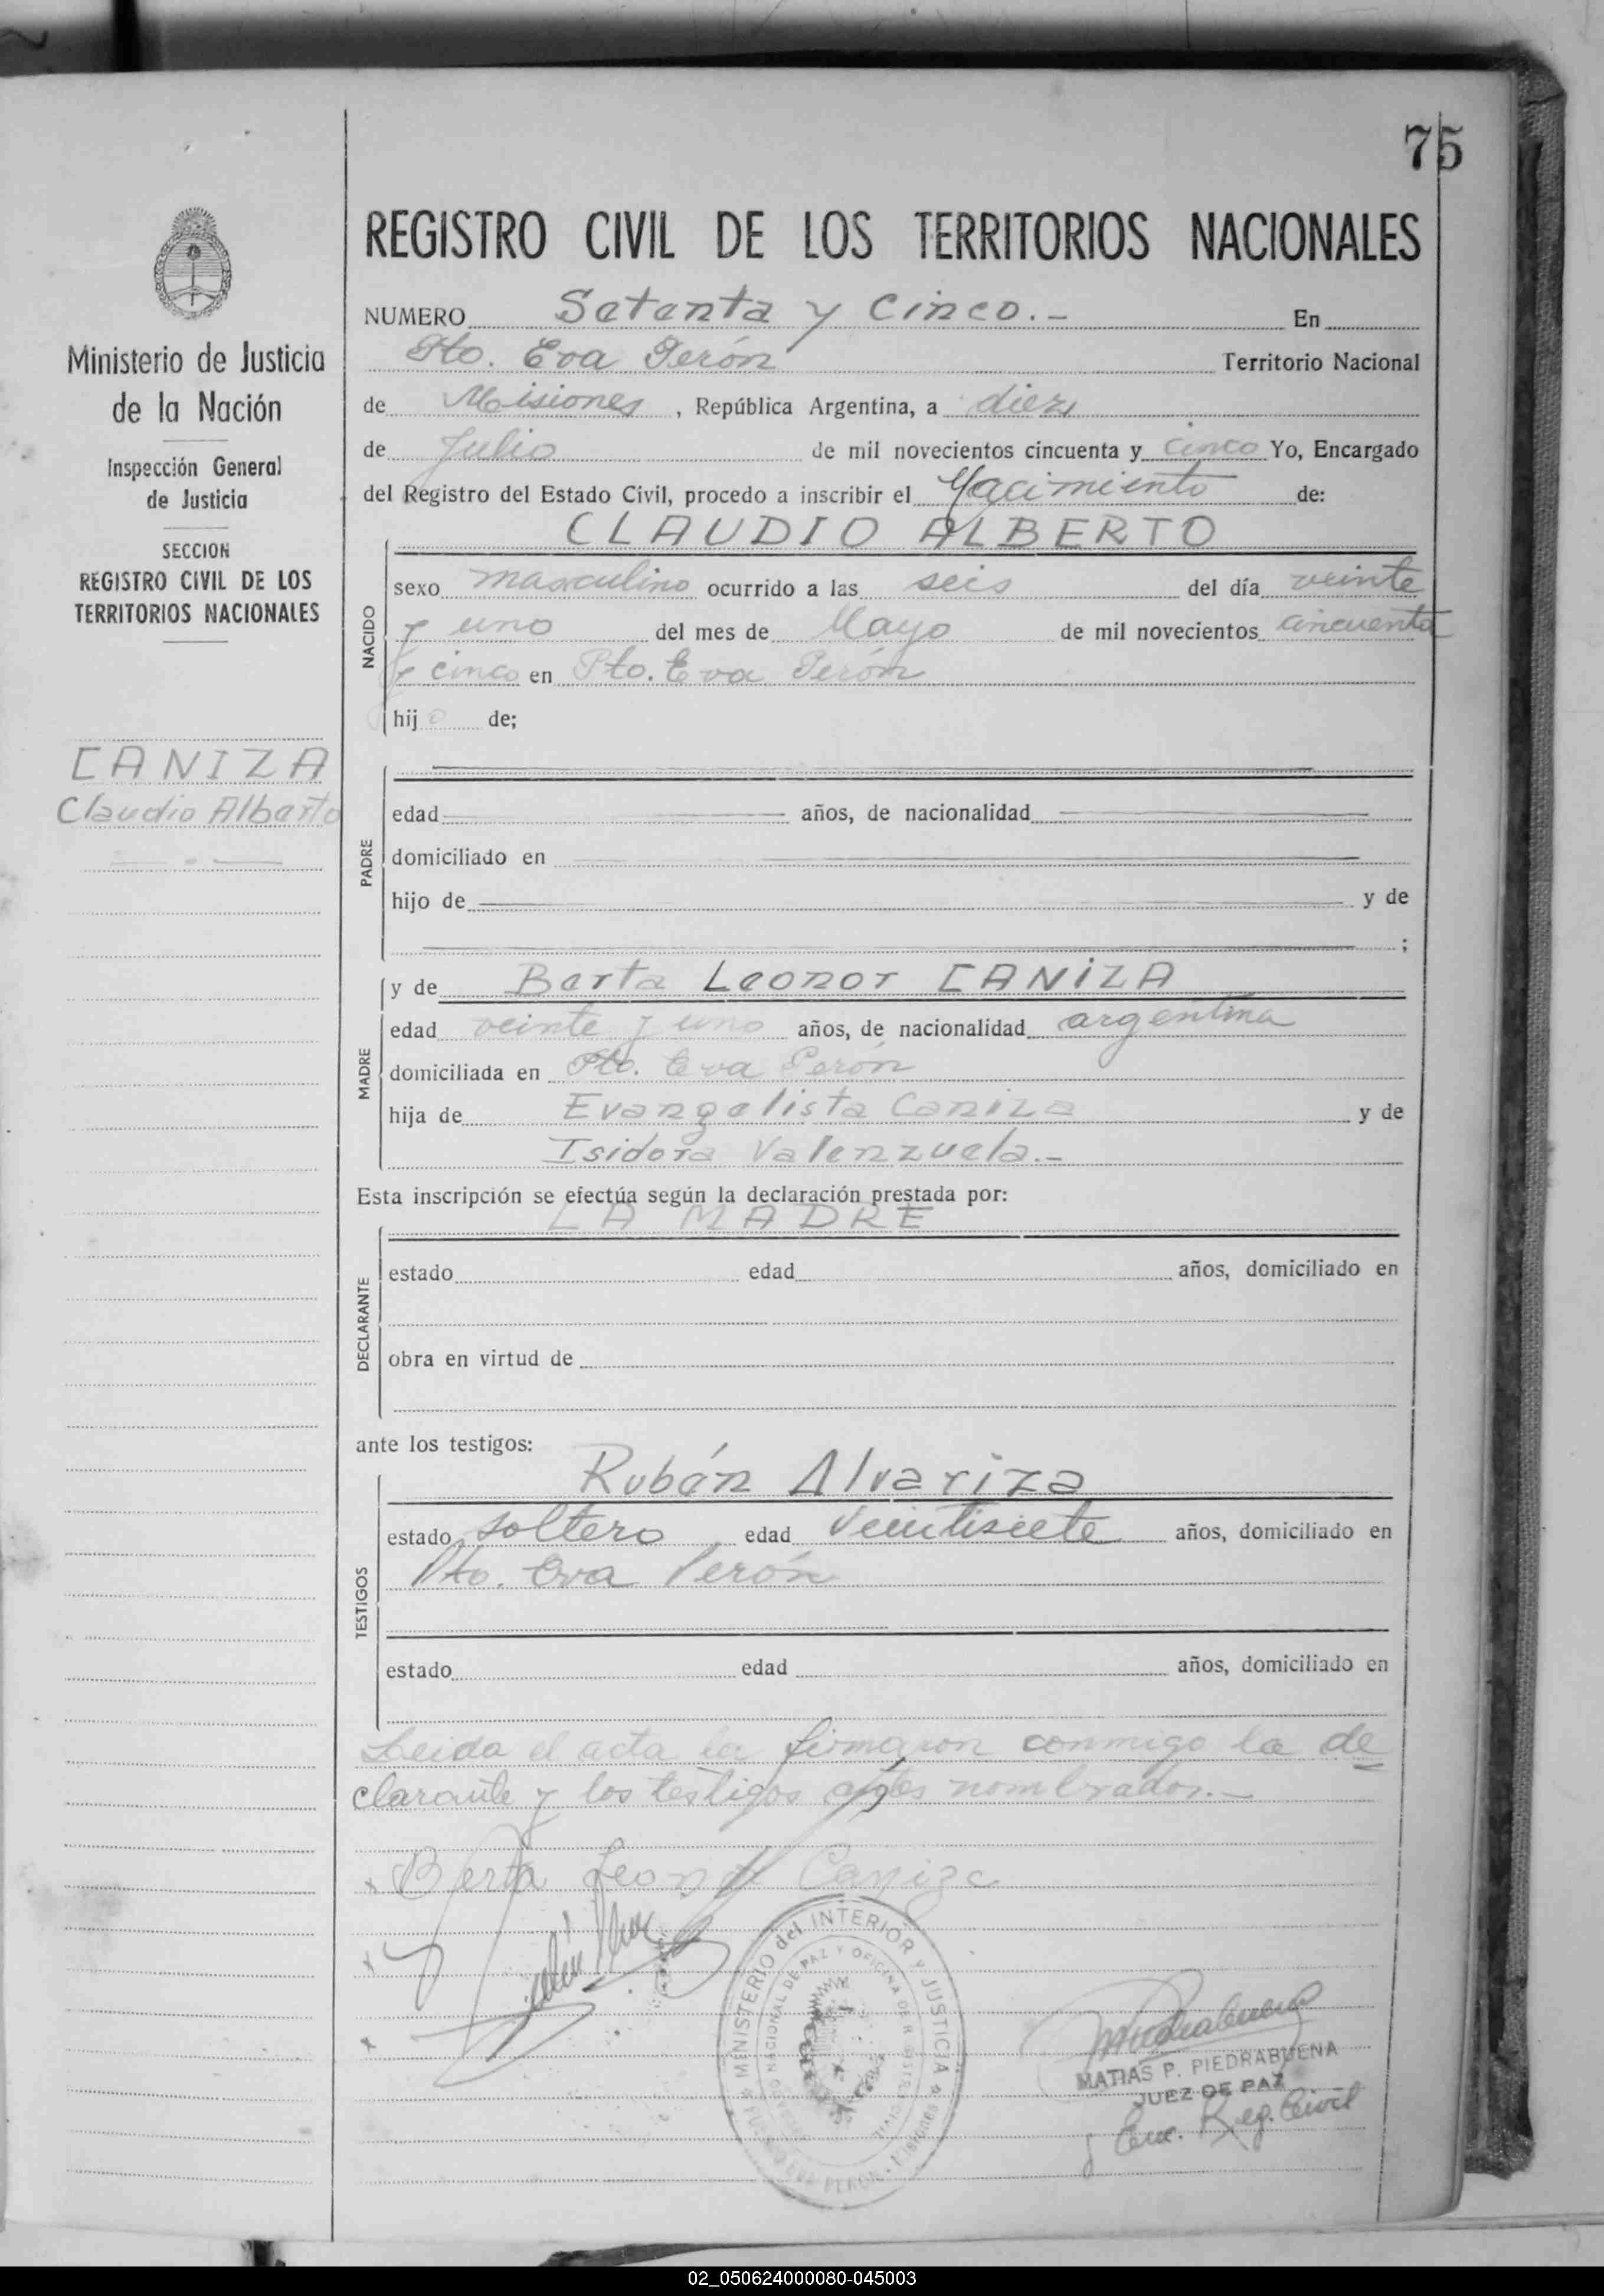 75
REGISTRO CIVIL DE LOS TERRITORIOS NACIONALES
Ministerio de Justicia
de la Nación
Inspección General
de Justicia
SECCION
REGISTRO CIVIL DE LOS
TERRITORIOS NACIONALES
CANIZA
Claudio Alberto
NUMERO Setenta y Cinco.- En
Pto. Eva Perón Territorio Nacional
de Misiones, República Argentina, a diez
de Julio de mil novecientos cincuenta y cinco Yo, Encargado
del Registro del Estado Civil, procedo a inscribir el Nacimiento de:
CLAUDIO ALBERTO
NACIDO
sexo masculino ocurrido a las seis del día veinte
y uno del mes de Mayo de mil novecientos cincuenta
y cinco en Pto. Eva Perón
hijo de;
PADRE
edad años, de nacionalidad
domiciliado en
hijo de y de
;
MADRE
y de Berta Leonor CANIZA
edad veinte y uno años, de nacionalidad argentina
domiciliada en Pto. Eva Perón
hija de Evangelista Caniza y de
Isidora Valenzuela.-
Esta inscripción se efectúa según la declaración prestada por:
LA MADRE
DECLARANTE
estado edad años, domiciliado en
obra en virtud de
ante los testigos:
TESTIGOS
Rubén Alvariza
estado soltero edad veintisiete años, domiciliado en
Pto. Eva Perón
estado edad años, domiciliado en
Leida el acta la firmaron conmigo la de
clarante y los testigos antes nombrados.-
x Berta Leonor Caniza
x
x
MINISTERIO del INTERIOR y JUSTICIA
PUERTO EVA PERON - MISIONES
JUZGADO NACIONAL DE PAZ Y OFICINA DE R
MATIAS P. PIEDRABUENA
JUEZ DE PAZ
y Enc. Reg. Civil
02_050624000080-045003